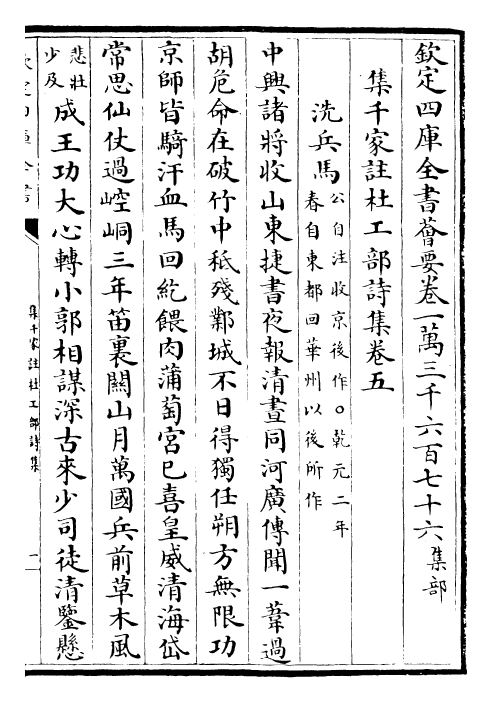 欽定四庫全書薈要卷一萬三千六百七十六集部
集千家註杜工部詩集卷五
洗兵馬公自注收京後作○乾元二年
春自東都回華州以後所作
中興諸將收山東捷書夜報清晝同河廣傳聞一葦過
胡危命在破竹中秖殘鄴城不日得獨任朔方無限功
京師皆騎汗血馬回紇餵肉蒲萄宮已喜皇威清海岱
常思仙仗過崆峒三年笛裏關山月萬國兵前草木風
悲壯
少及成王功大心轉小郭相謀深古來少司徒清鑒懸
集千家註杜工部詩集
一